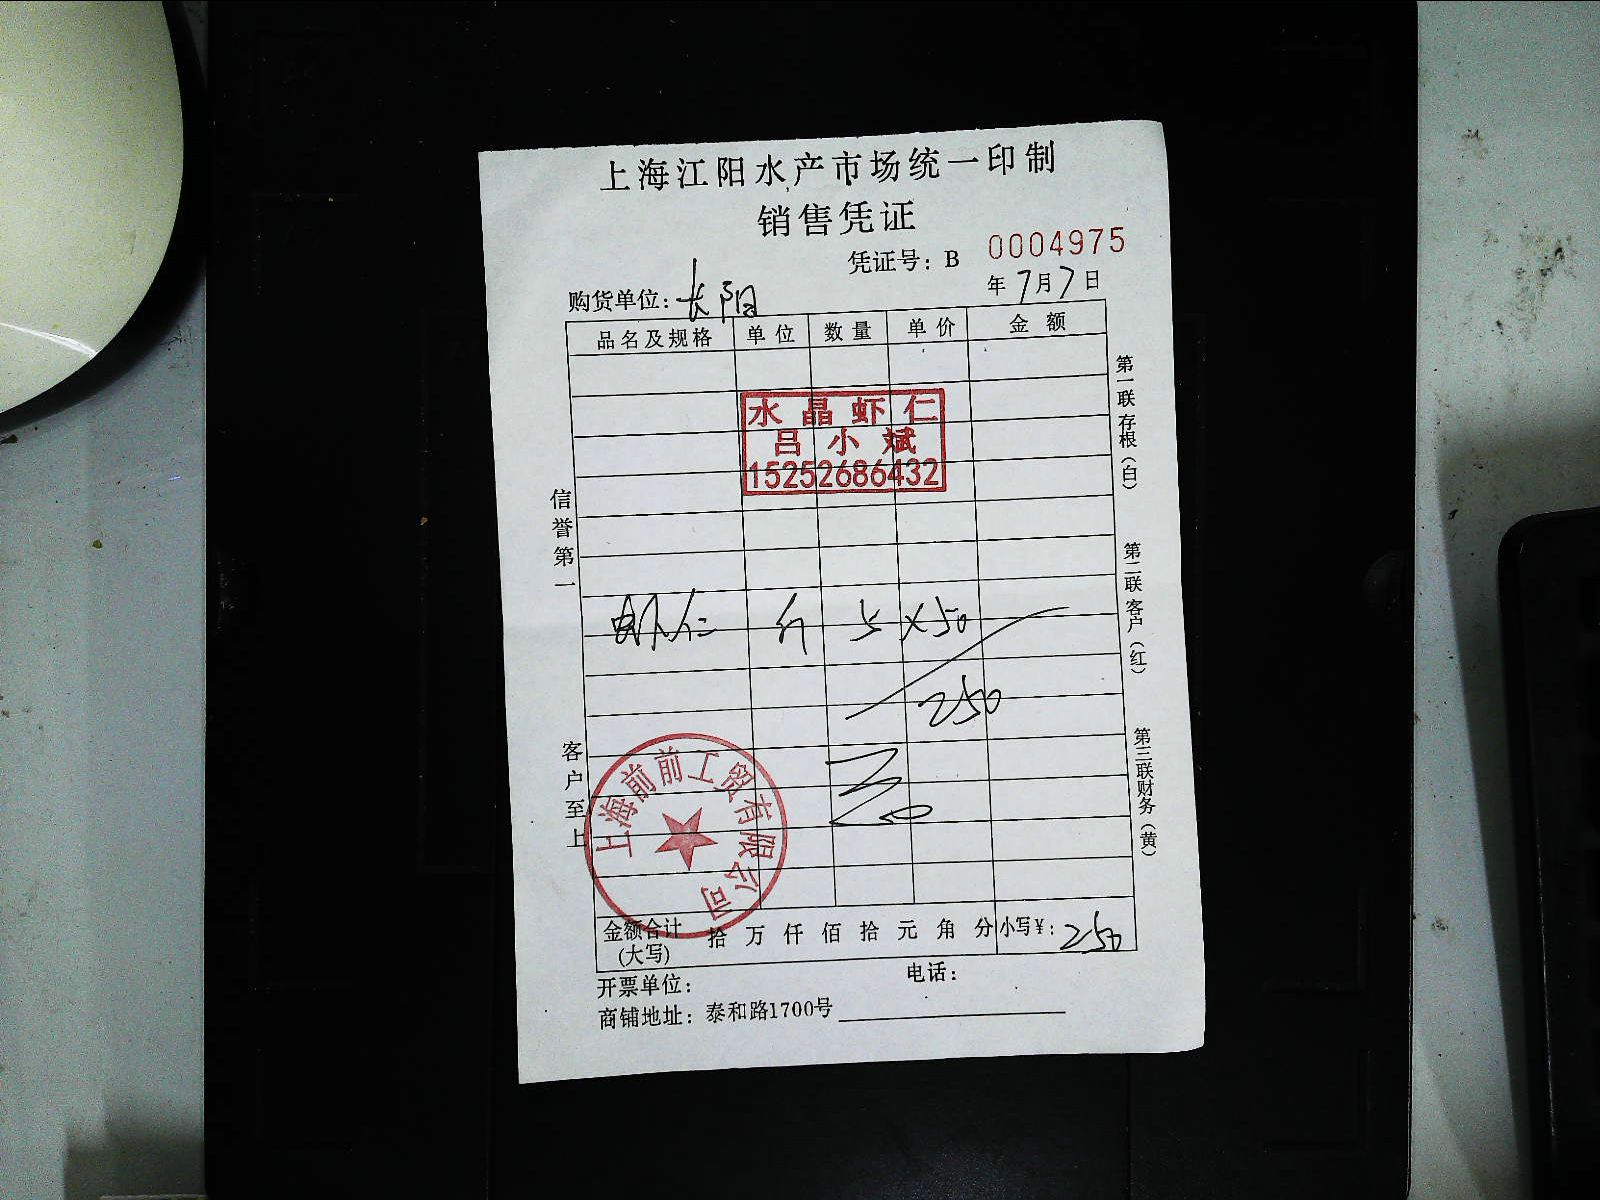 上海江阳水产市场统一印制
销售凭证
凭证号：B 0004975
年7月7日
购货单位：长阳
品名及规格 单位 数量 单价 金额
水晶虾仁
吕小斌
15252686432
虾仁 斤 5×50
250
上海前前工贸有限公司
金额合计(大写) 拾 万 仟 佰 拾 元 角 分 小写¥：250
开票单位： 电话：
商铺地址：泰和路1700号
信誉第一
客户至上
第一联存根（白）
第二联客户（红）
第三联财务（黄）